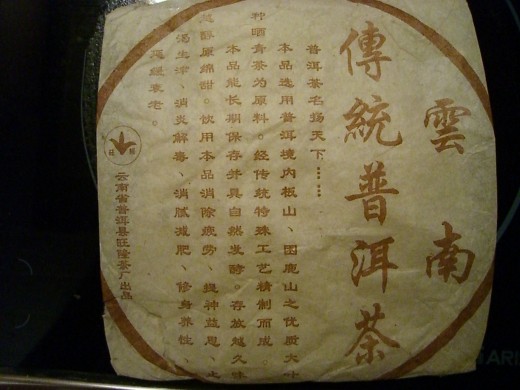 雲南
傳統普洱茶
普洱茶名扬天下……
本品选用普洱境内板山、困鹿山之优质大叶
种晒青茶为原料。经传统特殊工艺精制而成。
本品能长期保存并具自然发酵。存放越久味
越醇厚绵甜。饮用本品消除疲劳、提神益思、止
渴生津、消炎解毒、消腻减肥、修身养性、
延缓衰老。
云南省普洱县旺隆茶厂出品